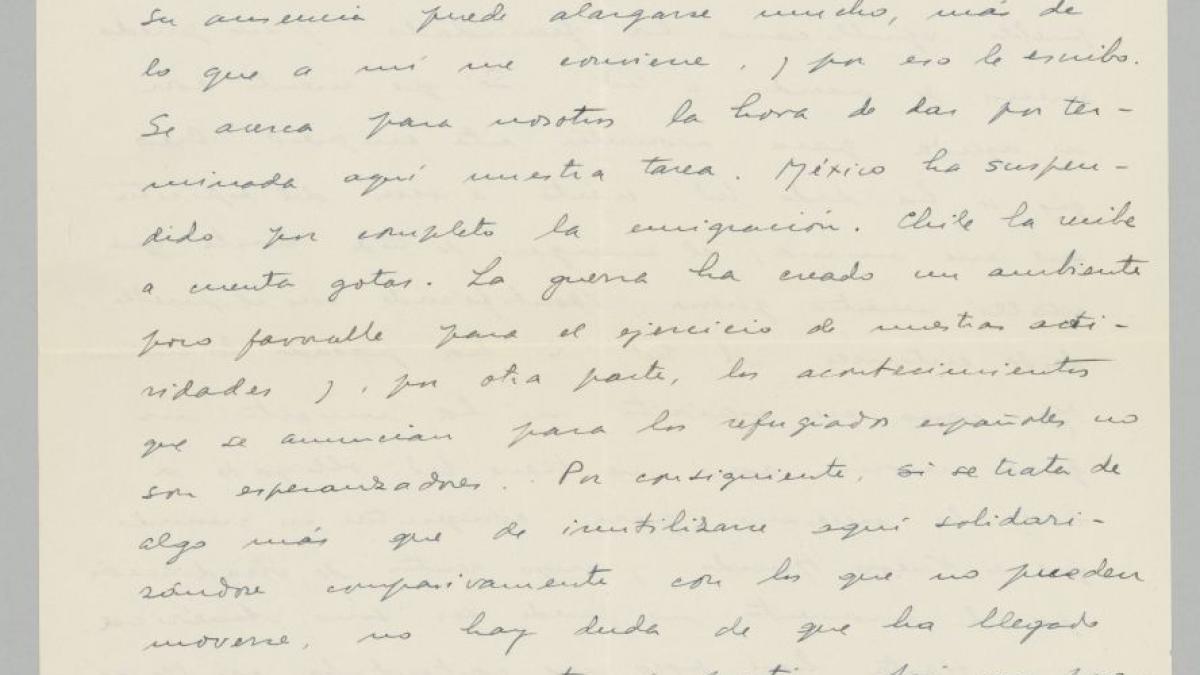 su ausencia puede alargarse mucho, más de
lo que a mí me conviene, y por eso le escribo.
Se acerca para nosotros la hora de dar por ter-
minada aquí nuestra tarea. México ha suspen-
dido por completo la emigración. Chile la recibe
a cuenta gotas. La guerra ha creado un ambiente
poco favorable para el ejercicio de nuestras acti-
vidades y, por otra parte, los acontecimientos
que se anuncian para los refugiados españoles no
son esperanzadores. Por consiguiente, si se trata de
algo más que de inutilizarse aquí solidari-
zándose compasivamente con los que no pueden
moverse, no hay duda de que ha llegado